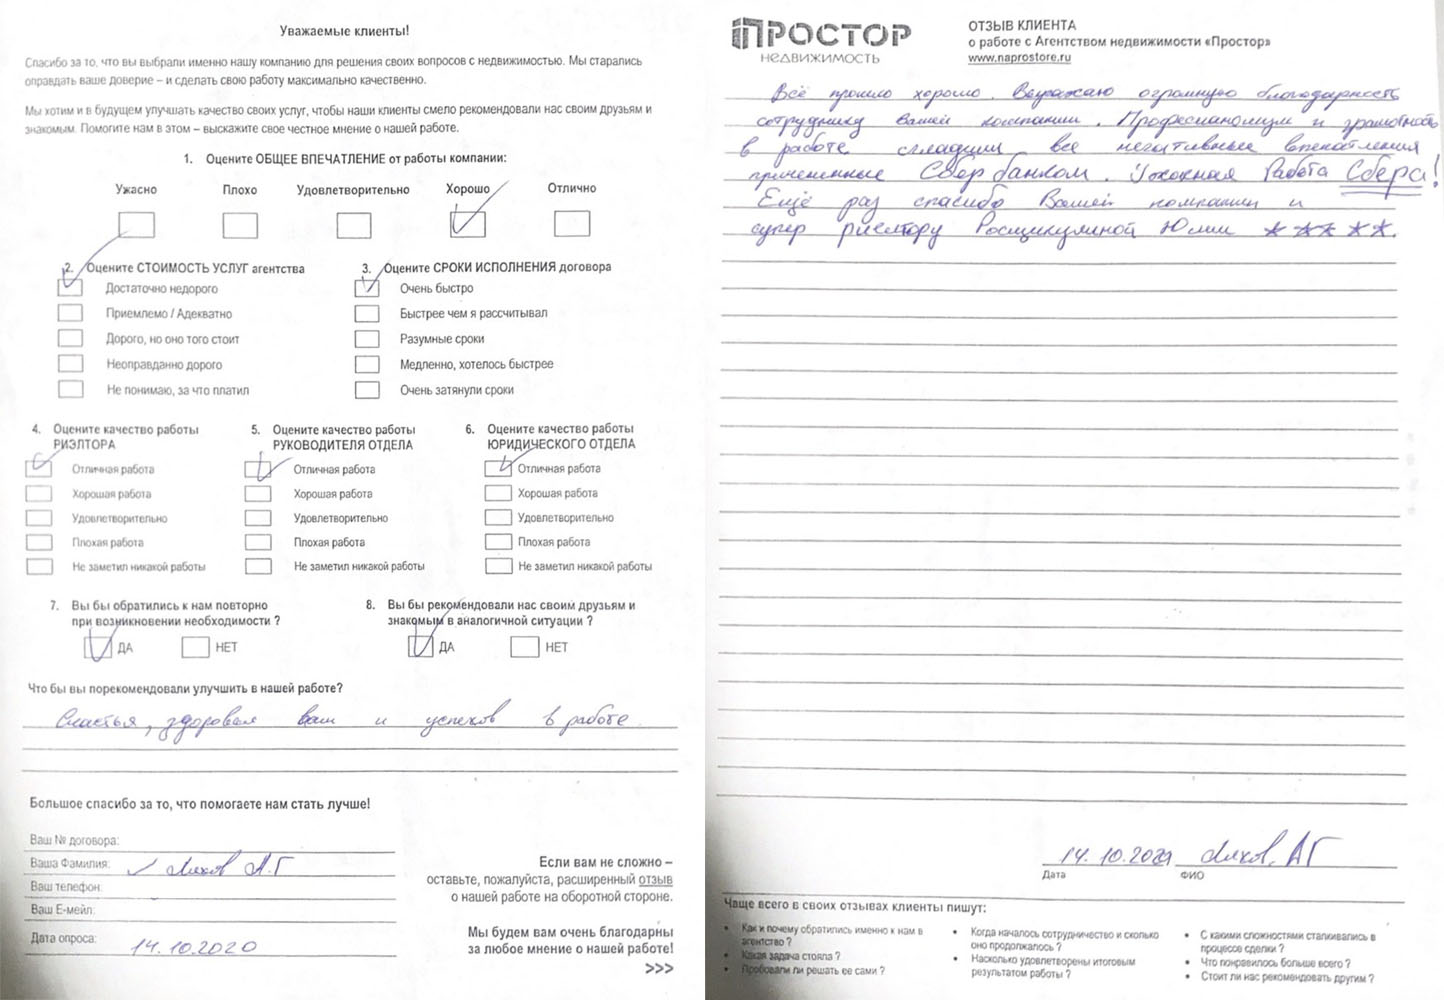 Уважаемые клиенты!
Спасибо за то, что вы выбрали именно нашу компанию для решения своих вопросов с недвижимостью. Мы старались
оправдать ваше доверие – и сделать свою работу максимально качественно.
Мы хотим и в будущем улучшать качество своих услуг, чтобы наши клиенты смело рекомендовали нас своим друзьям и
знакомым. Помогите нам в этом – выскажите свое честное мнение о нашей работе.
1. Оцените ОБЩЕЕ ВПЕЧАТЛЕНИЕ от работы компании:
Ужасно Плохо Удовлетворительно Хорошо Отлично
2. Оцените СТОИМОСТЬ УСЛУГ агентства
Достаточно недорого
Приемлемо / Адекватно
Дорого, но оно того стоит
Неоправданно дорого
Не понимаю, за что платил
3. Оцените СРОКИ ИСПОЛНЕНИЯ договора
Очень быстро
Быстрее чем я рассчитывал
Разумные сроки
Медленно, хотелось быстрее
Очень затянули сроки
4. Оцените качество работы
РИЭЛТОРА
Отличная работа
Хорошая работа
Удовлетворительно
Плохая работа
Не заметил никакой работы
5. Оцените качество работы
РУКОВОДИТЕЛЯ ОТДЕЛА
Отличная работа
Хорошая работа
Удовлетворительно
Плохая работа
Не заметил никакой работы
6. Оцените качество работы
ЮРИДИЧЕСКОГО ОТДЕЛА
Отличная работа
Хорошая работа
Удовлетворительно
Плохая работа
Не заметил никакой работы
7. Вы бы обратились к нам повторно
при возникновении необходимости ?
ДА НЕТ
8. Вы бы рекомендовали нас своим друзьям и
знакомым в аналогичной ситуации ?
ДА НЕТ
Что бы вы порекомендовали улучшить в нашей работе?
Счастья, здоровья вам и успехов в работе
Большое спасибо за то, что помогаете нам стать лучше!
Ваш № договора:
Ваша Фамилия: Ляхов А.Г
Ваш телефон:
Ваш Е-мейл:
Дата опроса: 14.10.2020
Если вам не сложно –
оставьте, пожалуйста, расширенный отзыв
о нашей работе на оборотной стороне.
Мы будем вам очень благодарны
за любое мнение о нашей работе!
>>>
ПРОСТОР
НЕДВИЖИМОСТЬ
ОТЗЫВ КЛИЕНТА
о работе с Агентством недвижимости «Простор»
www.naprostore.ru
Всё прошло хорошо. Выражаю огромную благодарность
сотруднику вашей компании. Професианолизм и грамотность
в работе сгладили все негативные впечатления
причененные Сбербанком. Ужасная Работа Сбера!
Ещё раз спасибо Вашей компании и
супер риелтору Росщикулиной Юлии ★★★★★.
14.10.2020 Ляхов АГ
Дата ФИО
Чаще всего в своих отзывах клиенты пишут:
• Как и почему обратились именно к нам в
агентство ?
• Какая задача стояла ?
• Пробовали ли решать ее сами ?
• Когда началось сотрудничество и сколько
оно продолжалось ?
• Насколько удовлетворены итоговым
результатом работы ?
• С какими сложностями сталкивались в
процессе сделки ?
• Что понравилось больше всего ?
• Стоит ли нас рекомендовать другим ?